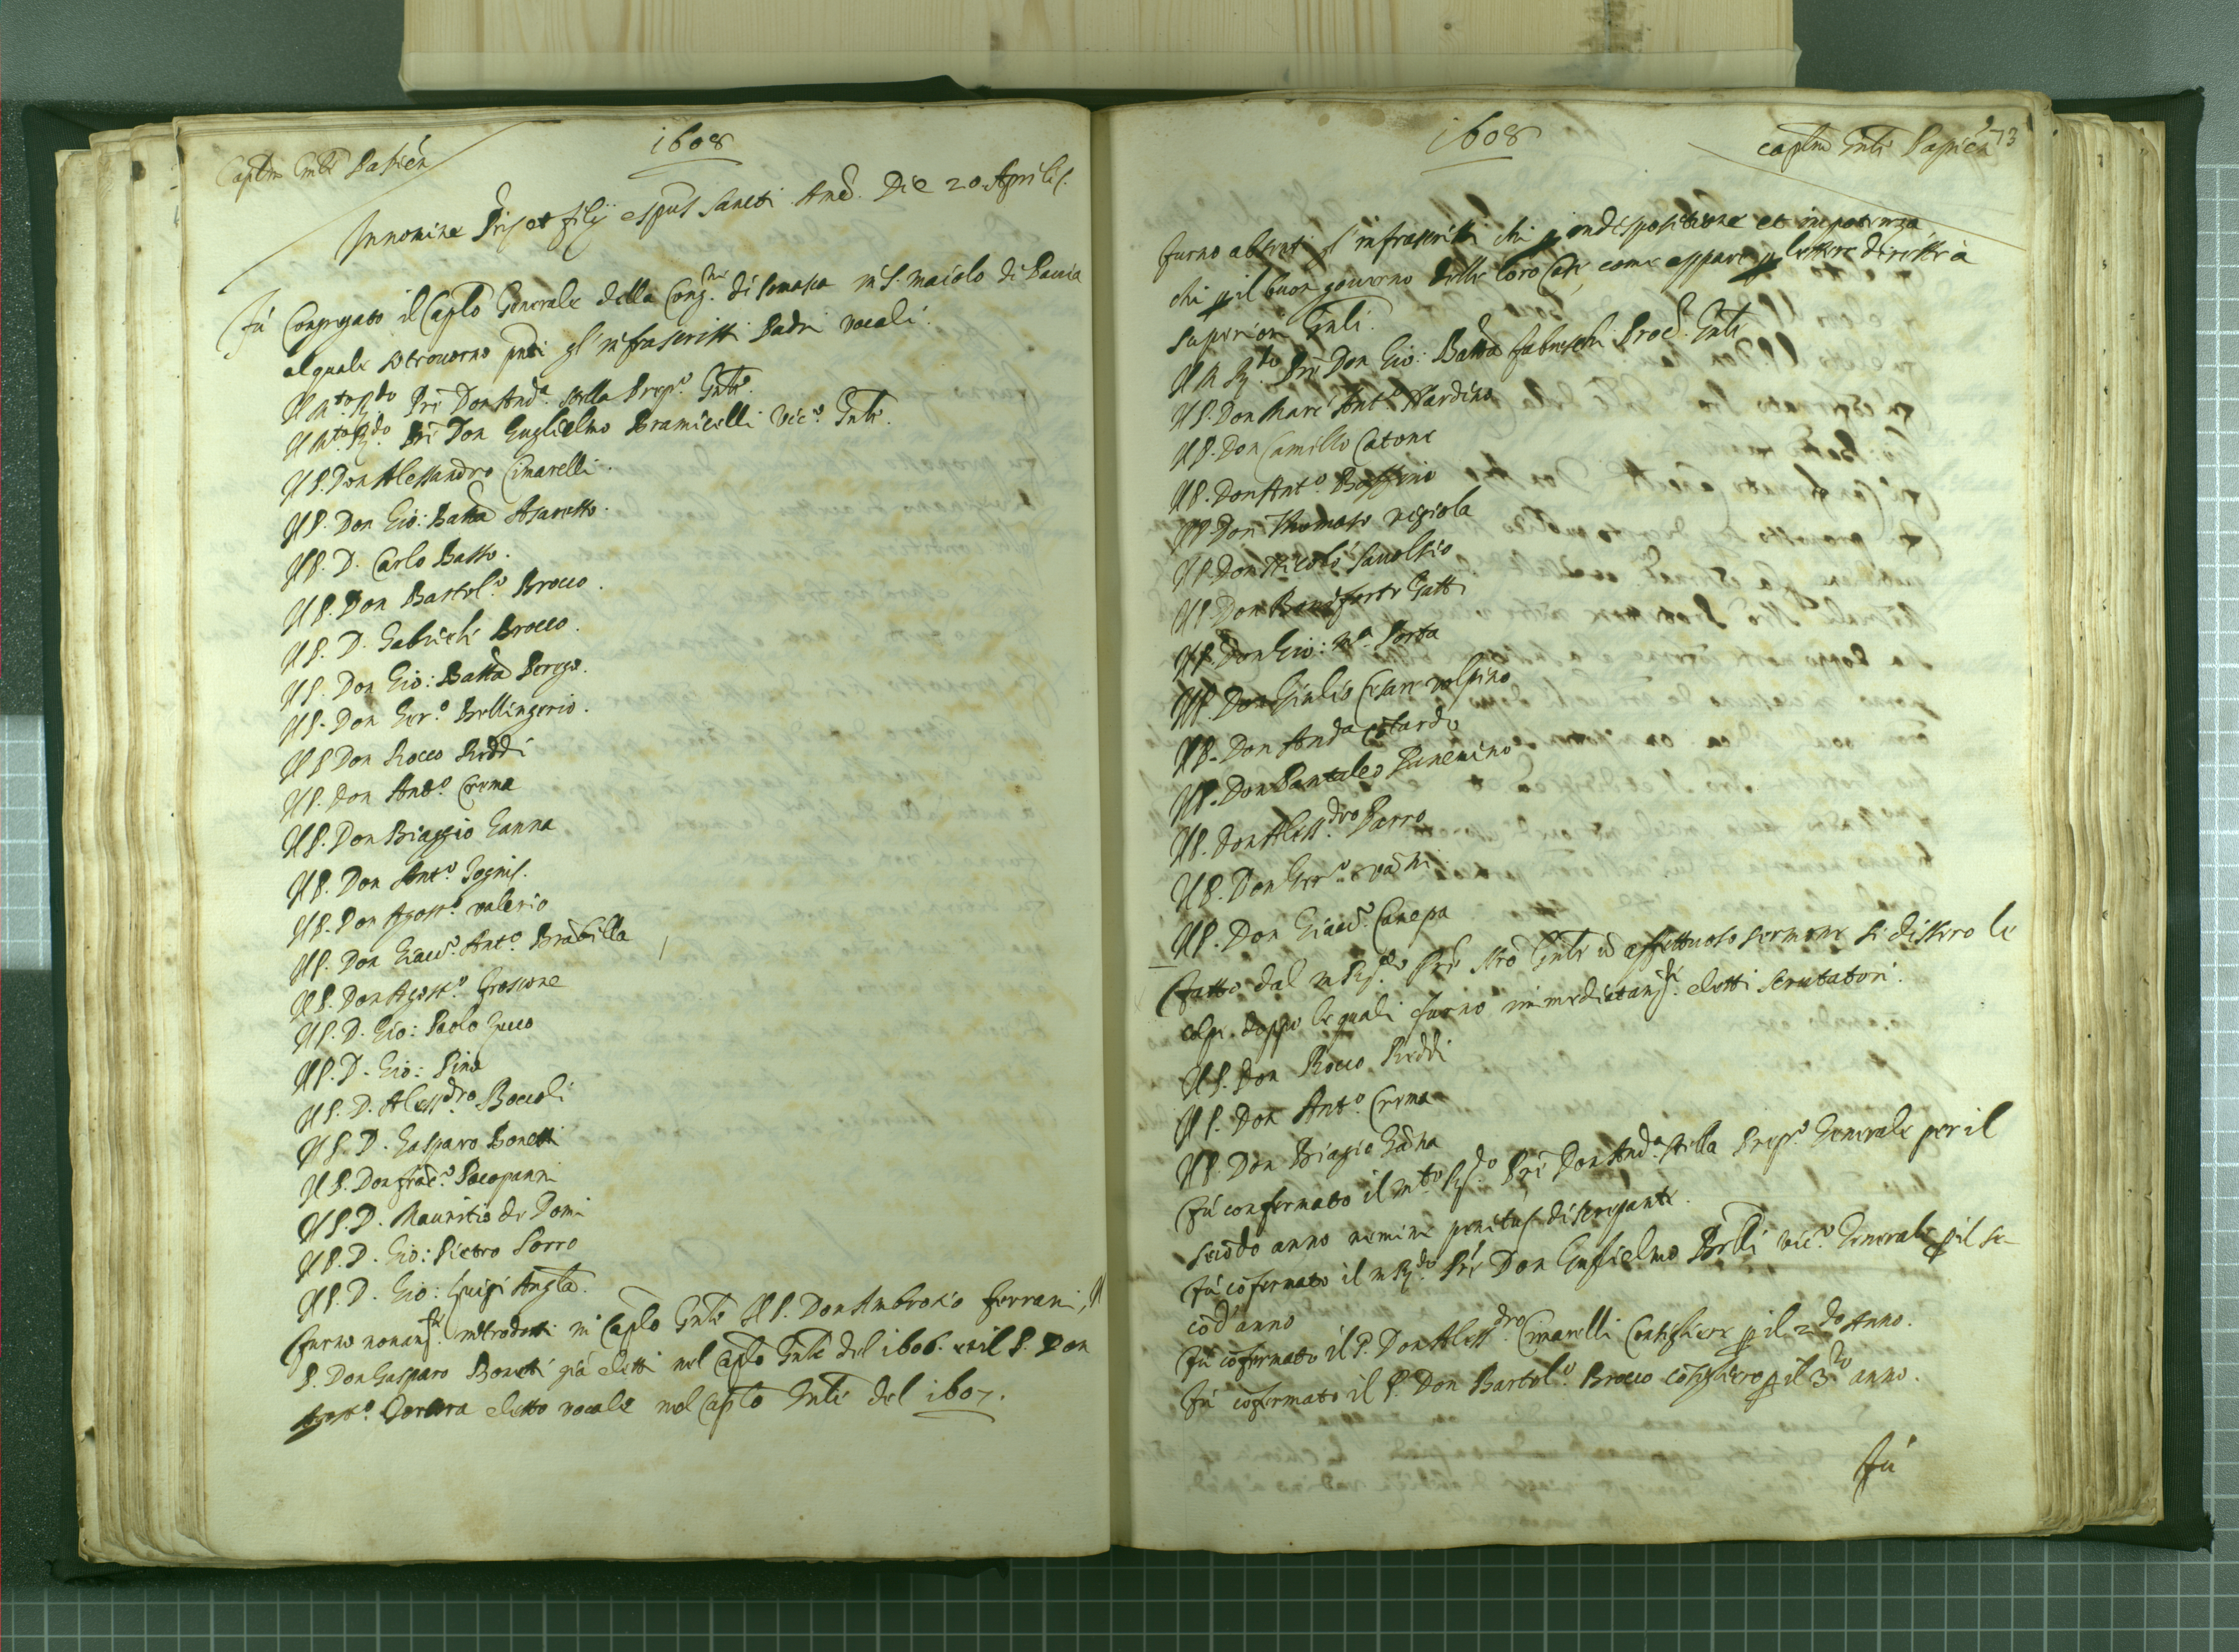 Captm Gnle Papien
1608
In nomine Pris et filij e spus Sancti Amē. Die 20 Aprilis.
Fù Congregato il Caplo Generale della Cong.ne di Somasca in S. Maiolo di Pavia
al quale si trovorno pnti gl'infrascritti Padri vocali.
Il M.to R.do Prē Don And.a Stella Prep.to Gnle.
Il M.to R.do Prē Don Guglielmo Bramicelli Vic.o Gnle.
Il P. Don Alessandro Cimarelli.
Il P. Don Gio: Batta Assaretto.
Il P. D. Carlo Basso.
Il P. Don Bartol.o Brocco.
Il P. D. Gabrieli Brocco.
Il P. Don Gio: Batta Perego.
Il P. Don Ger.o Bellingerio.
Il P. Don Rocco Reddi
Il P. Don Ant.o Crema
Il P. Don Biaggio Ganna
Il P. Don Ant.o Tognis.
Il P. Don Agost.o Valerio
Il P. Don Giac.o Ant.o Brābilla
Il P. Don Agost.o Froscone
Il P. D. Gio: Paolo Cucco
Il P. D. Gio: Pina
Il P. D. Aless.dro Boccoli
Il P. D. Gasparo Bonetti
Il P. Don Frāc.o Pocopanni
Il P. D. Mauritio de Domi
Il P. D. Gio: Pietro Sorro
Il P. D. Gio: Luigi
furno introdotti in Caplo Gnle Il P. Don Ambrosio Ferrari, Il
P. Don Gasparo Bonetti già eletti nel Caplo Gnle del 1606. et il P. Don
Agost.o eletto vocale nel Caplo Gnle del 1607.
1608
Captm Gnle Papien
273
furno absenti gl'infrascritti chi p indispositione et impotenza
chi p il buon governo delle loro Case, come appare p lettere diritte a
superiori Gnli.
Il M. R.do Prē Don Gio: Batta Fabreschi Proc. Gnle
Il P. Don Marc'Ant.o Nardino
Il P. Don Camillo Catone
Il P. Don Ant.o Boffino
Il P. Don Thomaso
Il P. Don Nicolò
Il P. Don Boniforte Gatti
Il P. Don Gio: M.a Porta
Il P. Don Giulio Cesare Volpino
Il P. Don And.a Cotardo
Il P. Don Pantaleo
Il P. Don Aless.dro Porro
Il P. Don Ger.o
Il P. Don Giac.o Canepa
Fatto dal M. R.do Prē Nro Gnle ū affettuoso sermone si dissero le
colpe. doppo le quali furno immediatam.te eletti scrutatori.
Il P. Don Rocco Reddi
Il P. Don Ant.o Crema
Il P. Don Biagio Gāna
Fù confermato il M.to R.do Prē Don And.a Stella Prep.to Generale per il
secōdo anno nemine penitus discrepante.
Fù cōfermato il M. R.do Prē Don Guglielmo Bralli vic.o Generale p il se-
cōd'anno
Fù cōfermato il P. Don Aless.dro Cimarelli Consigliere p il 2.do Anno.
Fù cōfermato il P. Don Bartol.o Brocco cōsigliero p il 3.zo anno.
Fù